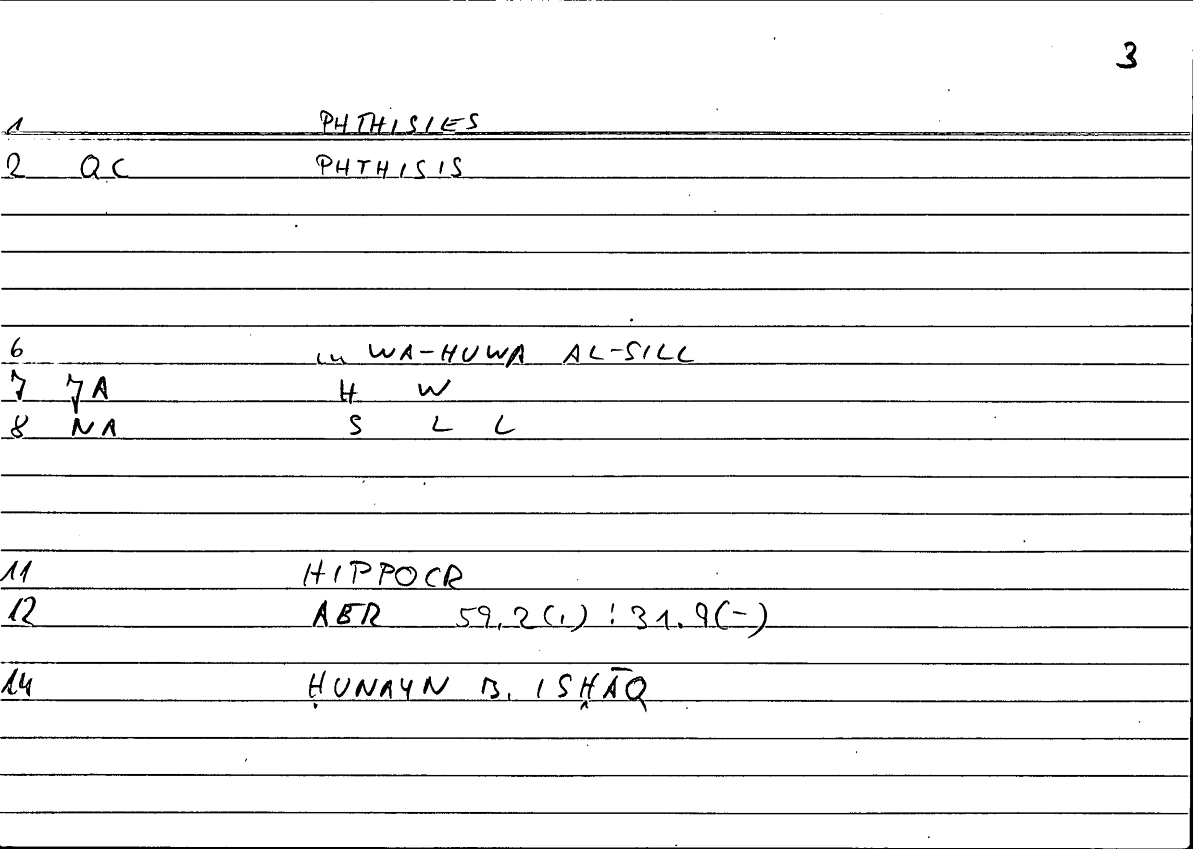 3
1 PHTHISIES
2 QC PHTHISIS
6 in WA-HUWA AL-SILL
7 7A H W
8 NA S L L
11 HIPPOCR
12 AER 59,2(,) : 31.9(-)
14 ḤUNAYN B. ISḤĀQ